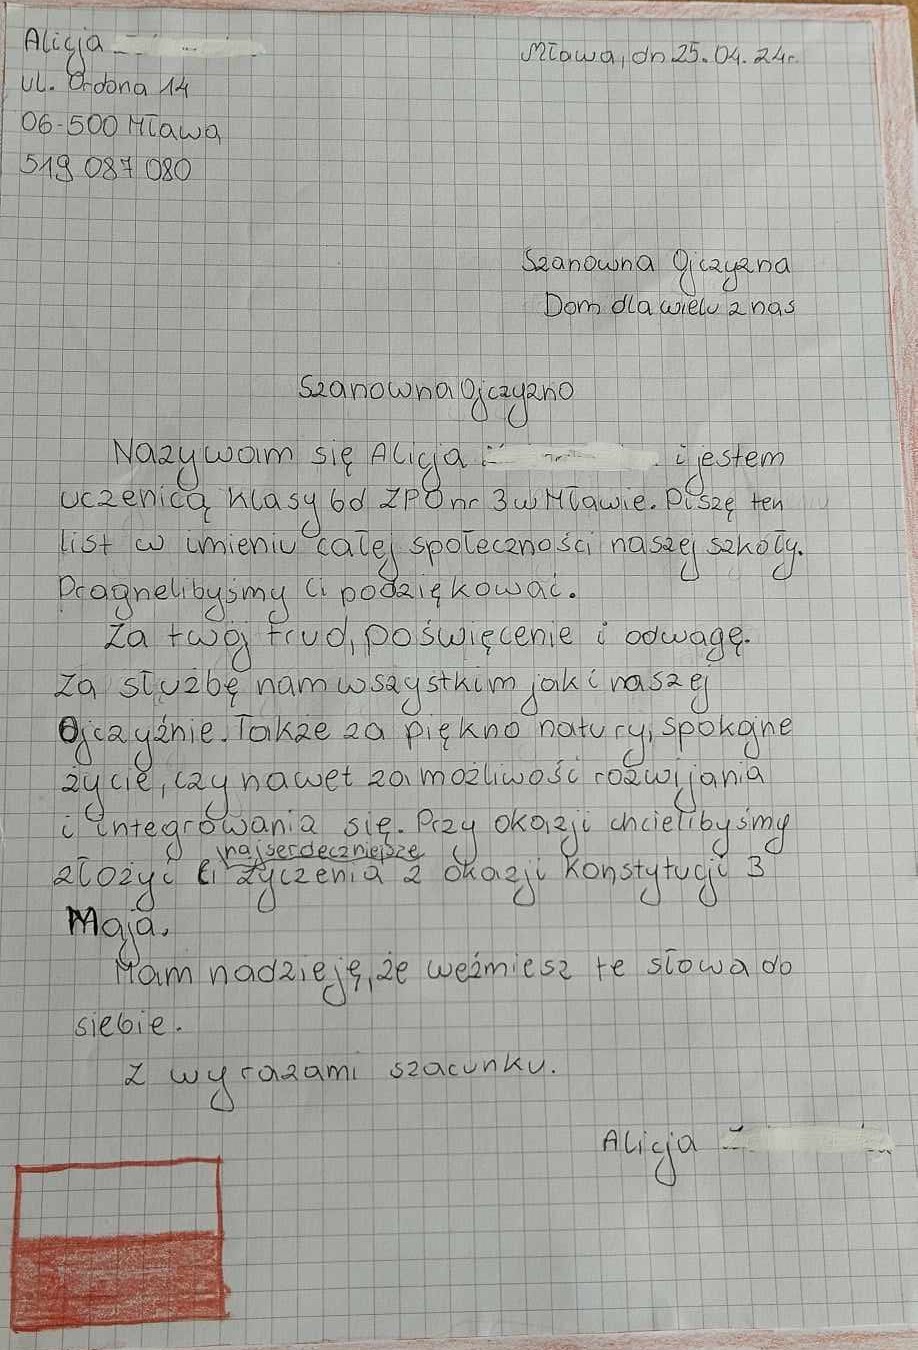 Alicja
Mława, dn 25.04.24r.
ul. Ordona 14
06-500 Mława
519 087 080
Szanowna Ojczyzna
Dom dla wielu z nas
Szanowna Ojczyzno
Nazywam się Alicja i jestem
uczenicą klasy 6d ZPO nr 3 w Mławie. Piszę ten
list w imieniu całej społeczności naszej szkoły.
Pragnelibyśmy Ci podziękować.
Za twój trud, poświęcenie i odwagę.
Za służbę nam wszystkim jak i naszej
Ojczyźnie. Także za piękno natury, spokojne
życie, czy nawet za możliwość rozwijania
i integrowania się. Przy okazji chcielibyśmy
najserdeczniejsze
złożyć Ci życzenia z okazji Konstytucji 3
Maja.
Mam nadzieję, że weźmiesz te słowa do
siebie.
Z wyrazami szacunku.
Alicja